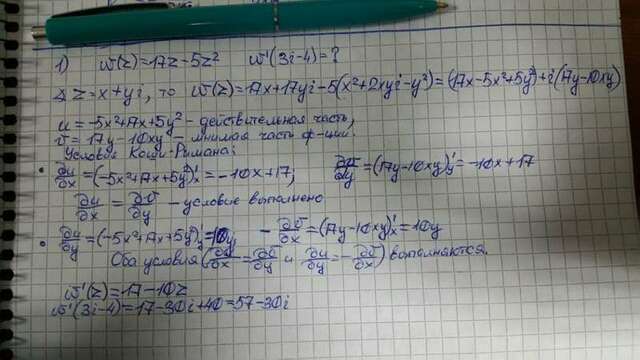 1) w(z)=17z-5z² w'(3i-4)=?
∆ z=x+yi, то w(z)=17x+17yi-5(x²+2xyi-y²)=(17x-5x²+5y²)+i(17y-10xy)
u=-5x²+17x+5y² - действительная часть,
v=17y-10xy - мнимая часть ф-ции.
Условия Коши-Римана:
• ∂u/∂x=(-5x²+17x+5y²)'x=-10x+17; ∂v/∂y=(17y-10xy)'y=-10x+17
∂u/∂x=∂v/∂y - условие выполнено
• ∂u/∂y=(-5x²+17x+5y²)'y=10y -∂v/∂x=(17y-10xy)'x=10y
Оба условия (∂u/∂x=∂v/∂y и ∂u/∂y=-∂v/∂x) выполняются.
w'(z)=17-10z
w'(3i-4)=17-30i+40=57-30i